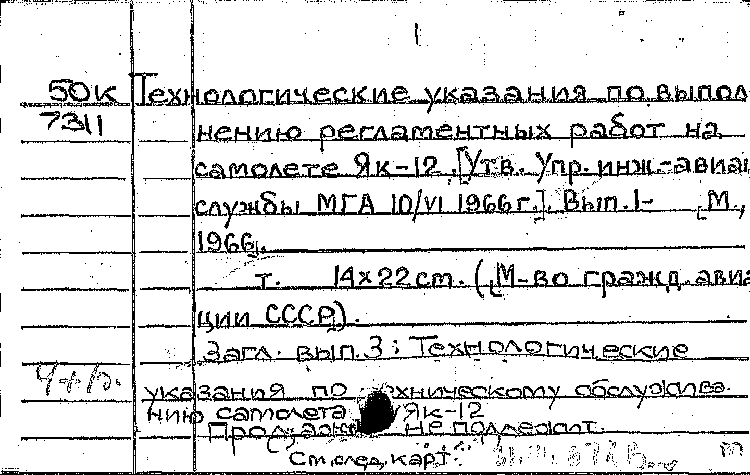 50К Технологические указания по выпол
7311 нению регламентных работ на
самолете Як-12. [Утв. Упр. инж.-авиац
службы МГА 10/VI 1966 г.]. Вып. 1- [М.,
1966].
т. 14x22 см. ([М-во гражд. авиа
ции СССР).
Загл. вып. 3: Технологические
указания по техническому обслужива
нию самолета Як-12
не подлежит.
См. след. карт.